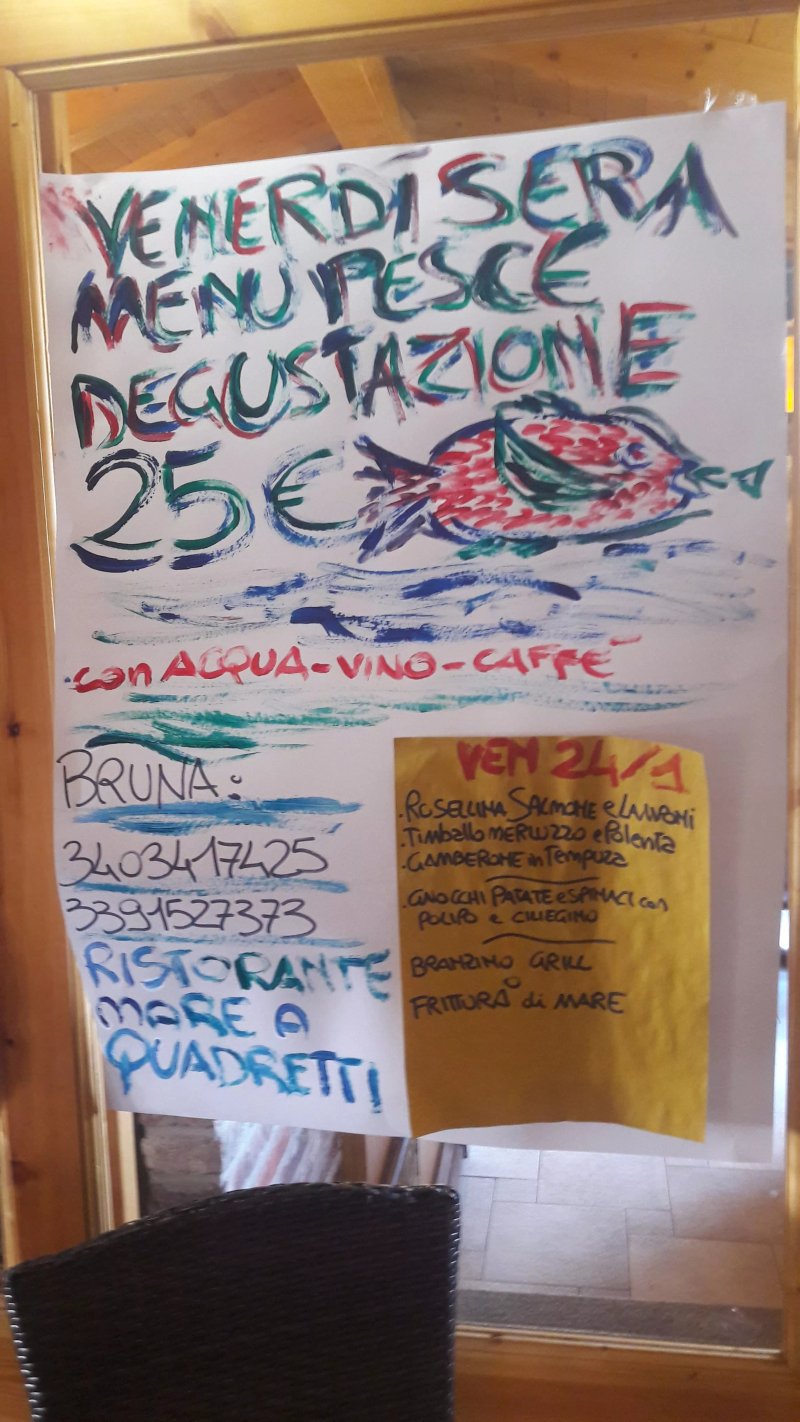 VENERDÌ SERA
MENU PESCE
DEGUSTAZIONE
25 €
con ACQUA - VINO - CAFFE'
BRUNA:
3403417425
3391527373
RISTORANTE
MARE A
QUADRETTI
VEN 24/1
. ROSELLINA SALMONE e LAMPONI
. TimballO MERLUZZO e Polenta
. GAMBERONE in Tempuza
. GNOCCHI PATATE e SPINACI con
POLIPO e CILIEGINO
BRANZINO GRILL
O
FRITTURA di MARE